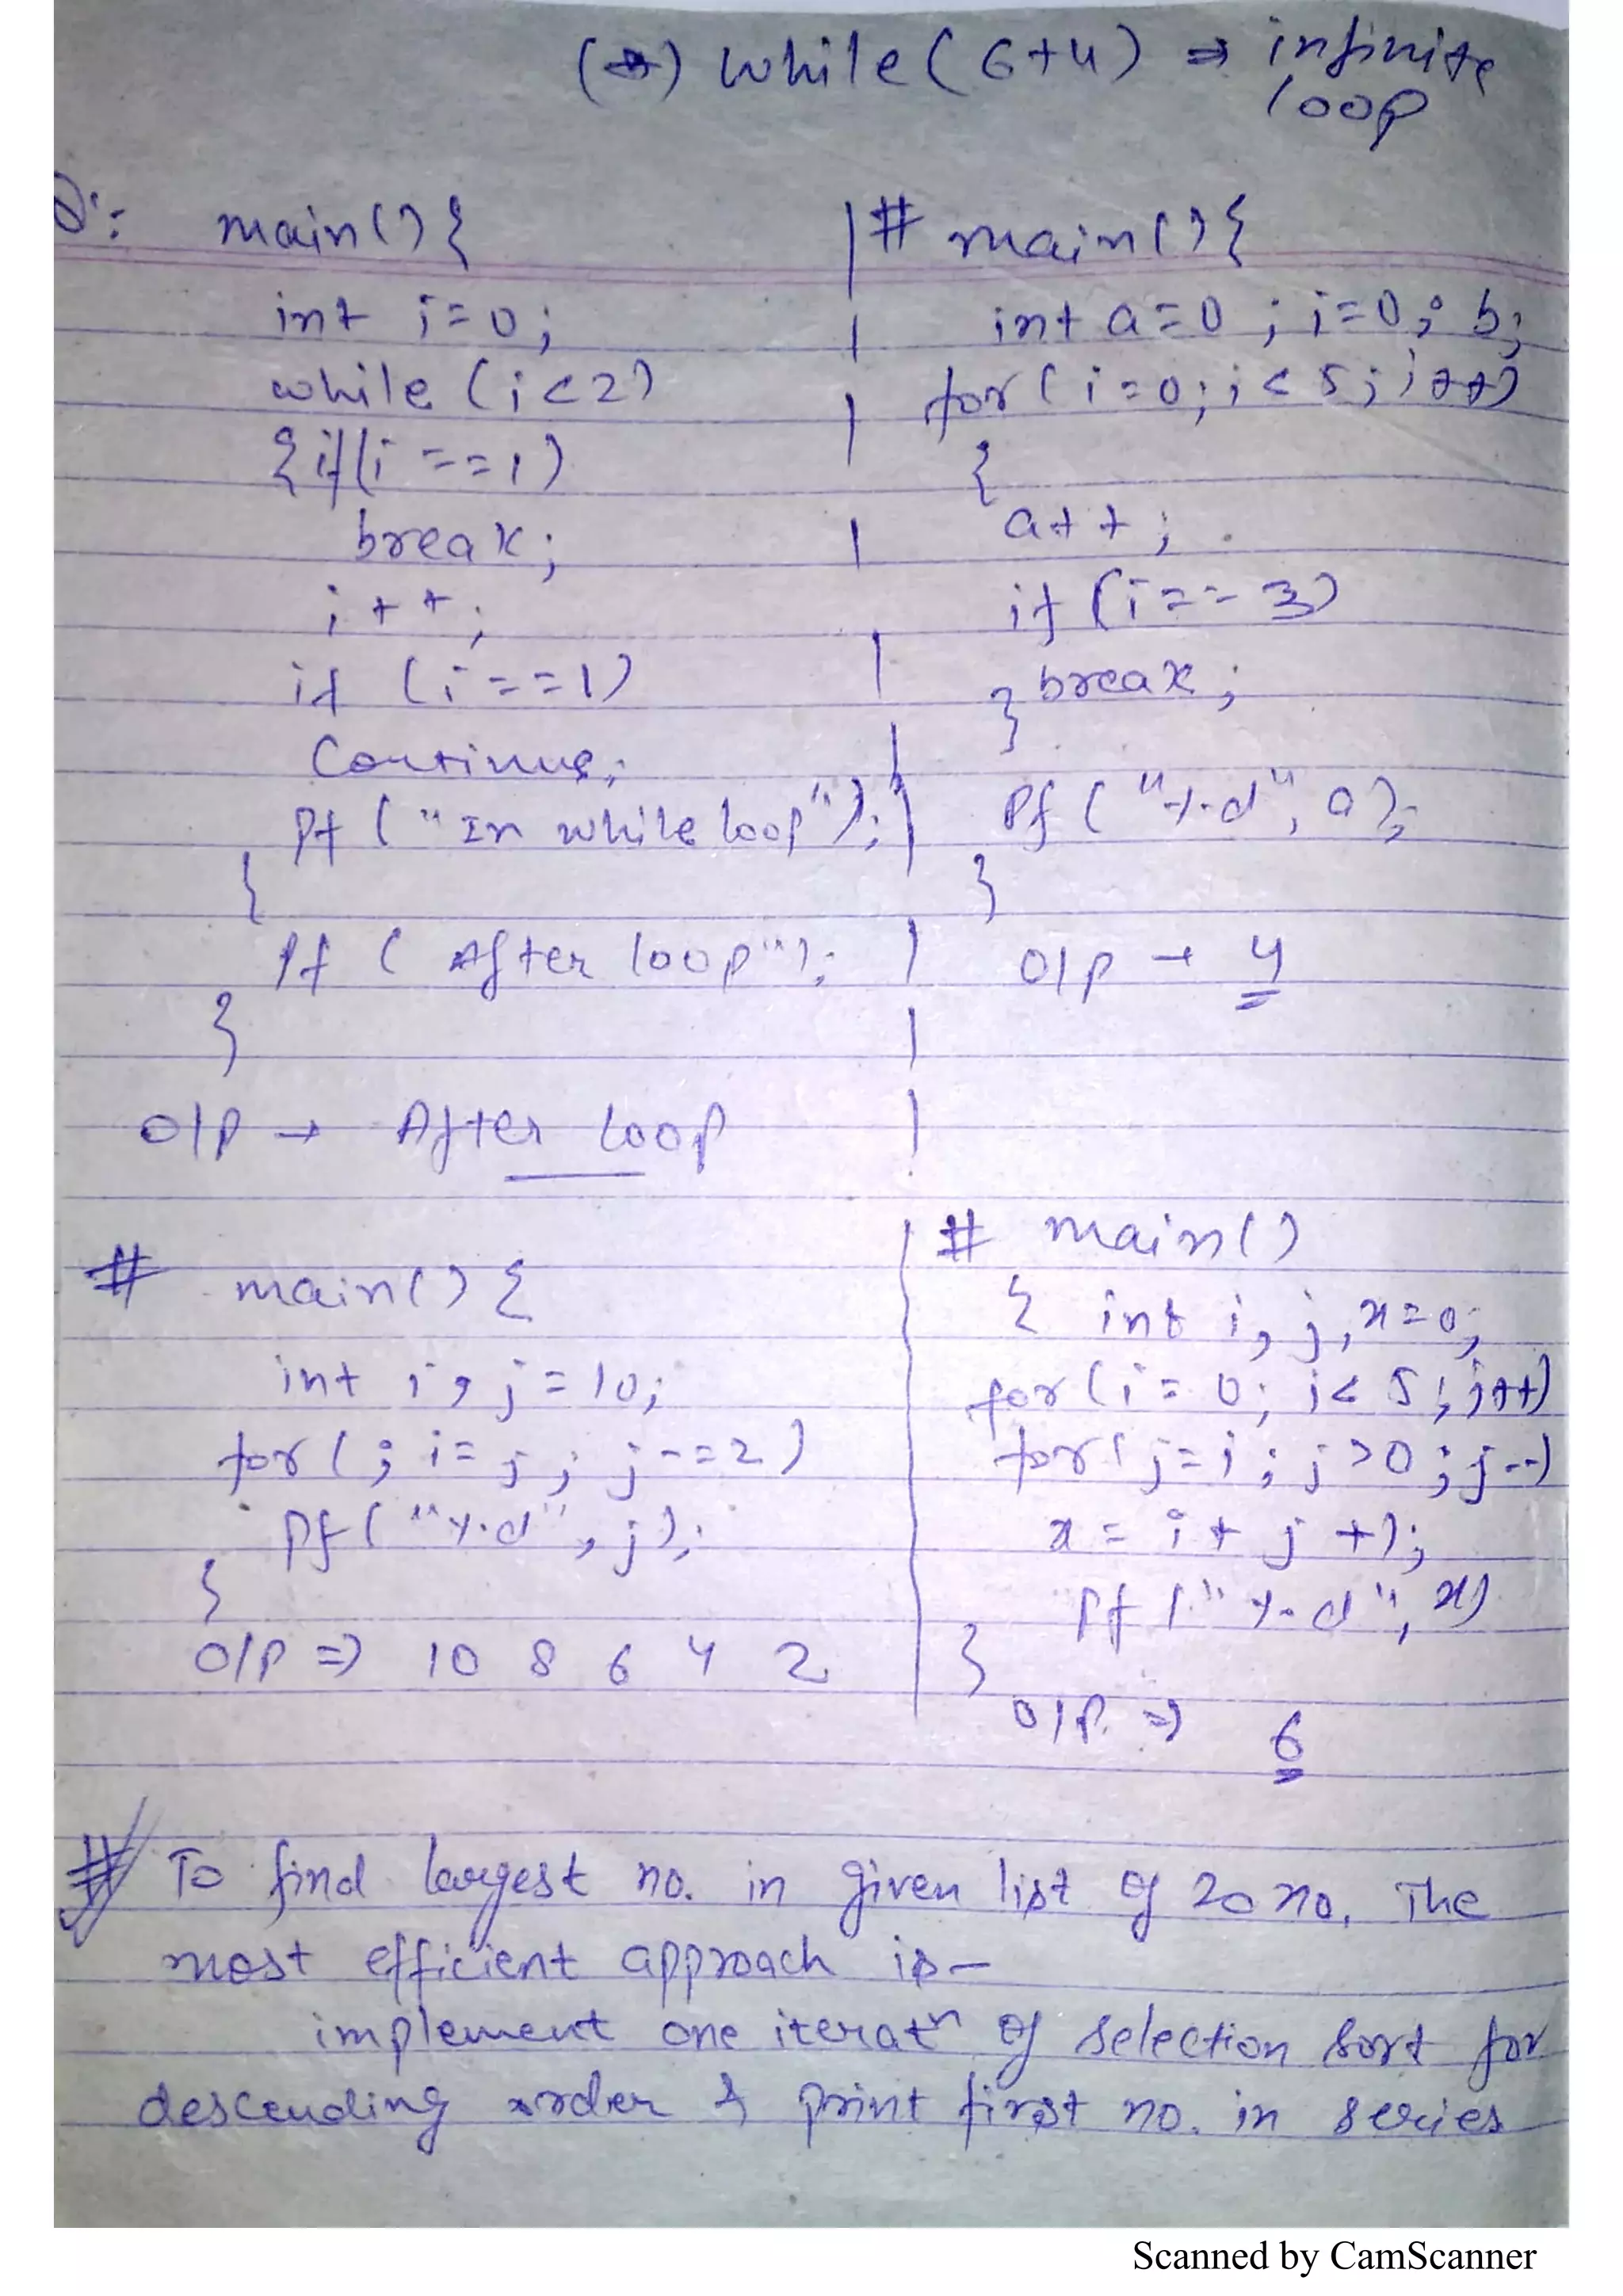 (*) while(6+4) ⇒ infinite
loop
Q:: main(){
int i=0;
while (i<2)
{if(i ==1)
break;
i++;
if (i==1)
Continue;
Pf ("In while loop");
}
Pf ( After loop");
}
O/P → After loop
# main(){
int a=0 ; i=0; b;
for(i=0;i<5;i++)
{
a++;
if (i==3)
break;
}
Pf ("%d", a);
}
O/P → 4
# main(){
int i, j=10;
for(; i=j; j-=2)
Pf("%d", j);
}
O/P ⇒ 10 8 6 4 2
# main()
{ int i, j, x=0;
for(i=0; i<5; i++)
for(j=i; j>0; j--)
x = i + j +1;
Pf ("%d", x)
}
O/P. ⇒ 6
# To find largest no. in given list of 20 no. The
most efficient approach is-
implement one iteratn of selection sort for
descending order & print first no. in series
Scanned by CamScanner